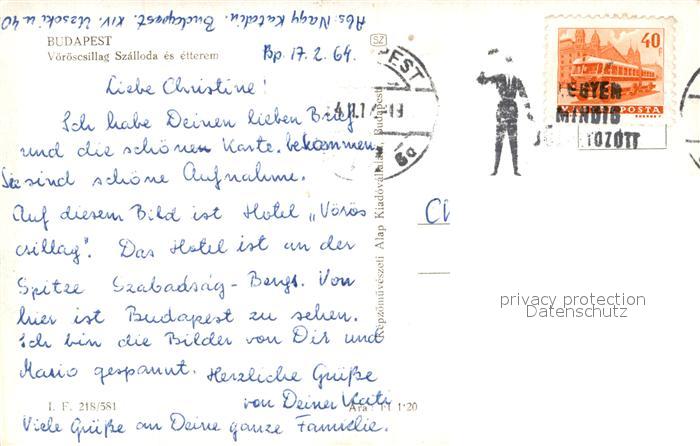 Abs: Nagy Katalin. Budapest. XIV. Uzsoki u 40
BUDAPEST
Vöröscsillag Szálloda és étterem
Bp. 17. 2. 64.
SZ
40
F
MAGYAR POSTA
LEGYEN
MINDIG
Liebe Christine!
Ich habe Deinen lieben Brief
und die schönen Karte bekommen,
Sie sind schöne Aufnahme.
Auf diesem Bild ist Hotel „Vörös
csillag". Das Hotel ist an der
Spitze Szabadság-Bergs. Von
hier ist Budapest zu sehen.
Ich bin die Bilder von Dir und
Mario gespannt. Herzliche Grüße
von Deiner Kati
Viele Grüße an Deine ganze Familie.
I. F. 218/581
Ára: Ft 1·20
Képzőművészeti Alap Kiadóvállalata, Budapest
privacy protection
Datenschutz